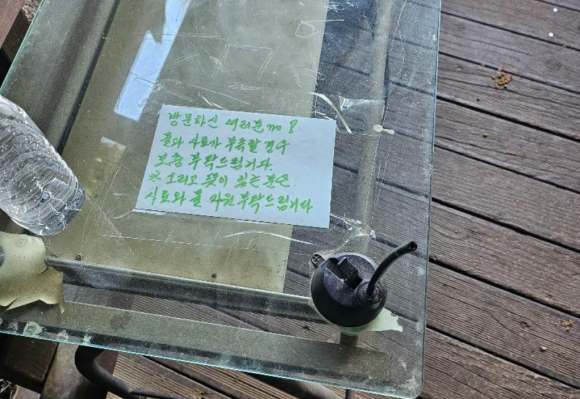 방문하신 여러분께 !
물과 사료가 부족할 경우
보충 부탁드립니다
※ 그리고 뜻이 있는 분은
사료와 물 지원 부탁드립니다